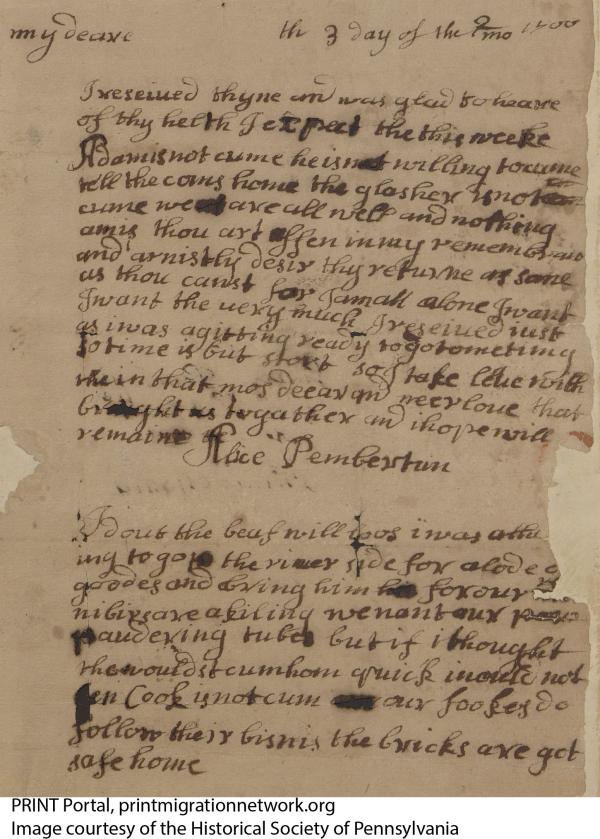 my deare th 3 day of the 2/mo 1700
I reseived thyne and was glad to heare
of thy helth I expect the this weeke
Adam is not cume he is not willing to cume
tell the coms home the glasher is not
cume we are all well and nothing
amis thou art offen in my remembranc
and arnistly desir thy returne as sone
as thou canst for I am all alone I want
I want the very much I reseived iust
as i was a gitting ready to go to meting
so time is but short so I take leve with
the in that mos deear and neer love that
brought us togather and i hope will
remaine
Alice Pembertun
I dout the beaf will i was a
ing to go to the river side for a lode
goodes and bring him for our
are a kiling we want our
paudering tubes but if i thought
the wouldst cum hom quick i would not
Cook is not cum our fookes do
follow their bisnis the bricks are got
safe home
PRINT Portal, printmigrationnetwork.org
Image courtesy of the Historical Society of Pennsylvania